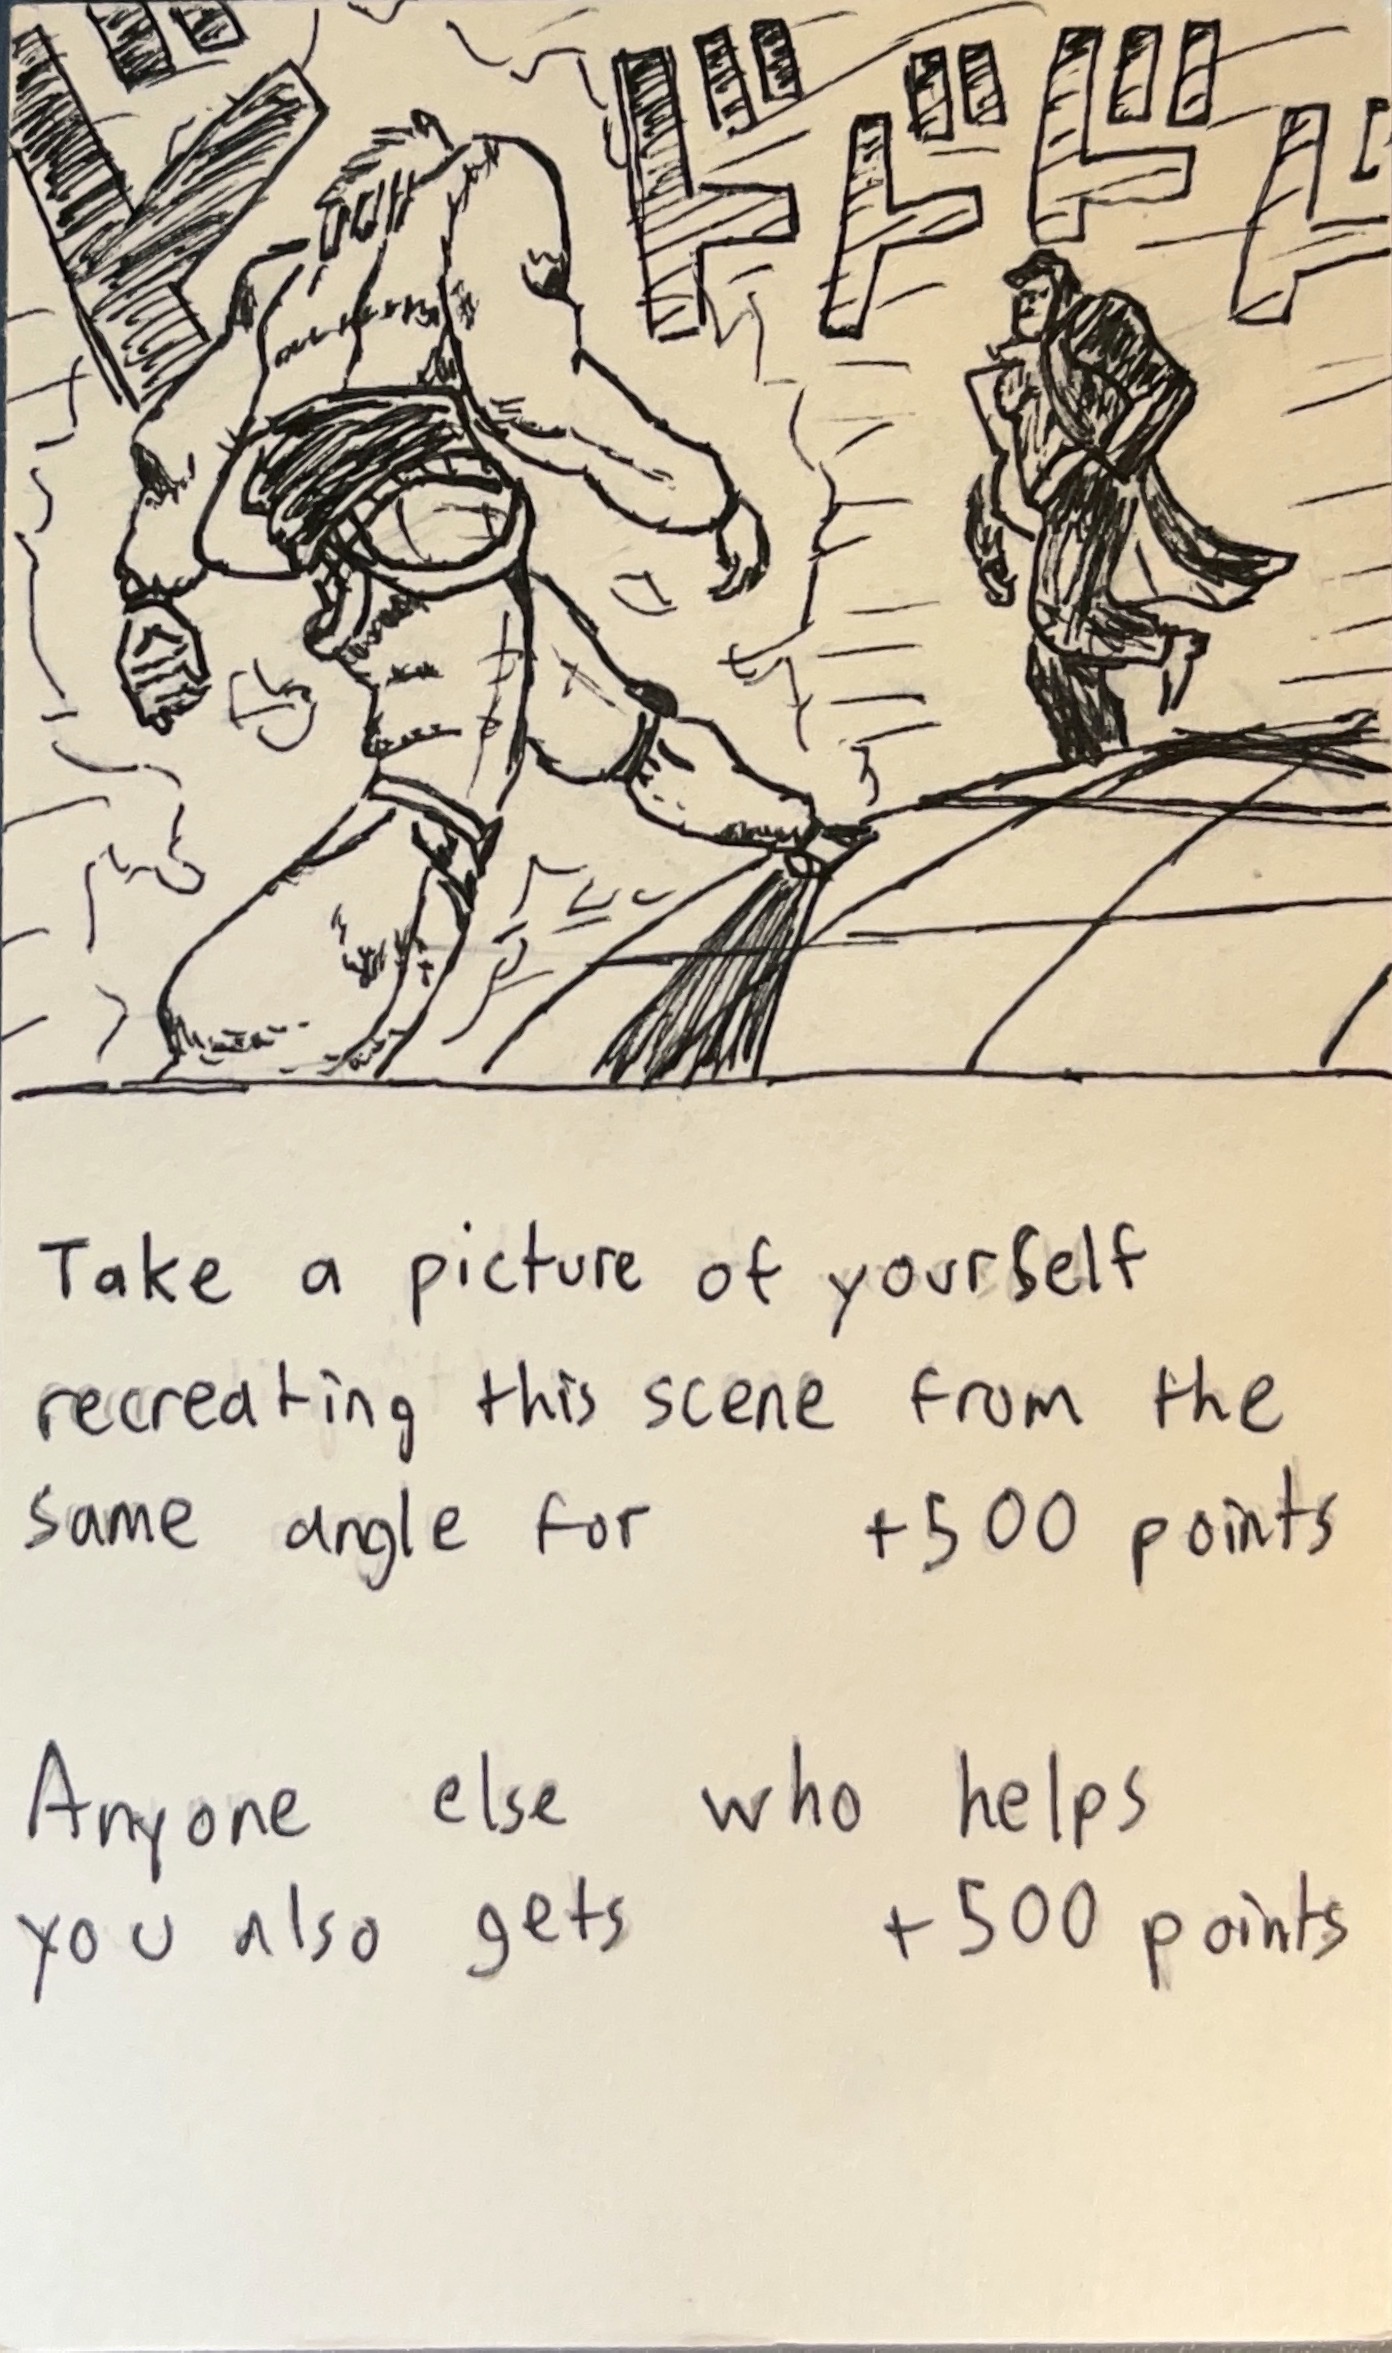 ド ド ド ド ド
Take a picture of yourself
recreating this scene from the
same angle for +500 points
Anyone else who helps
you also gets +500 points